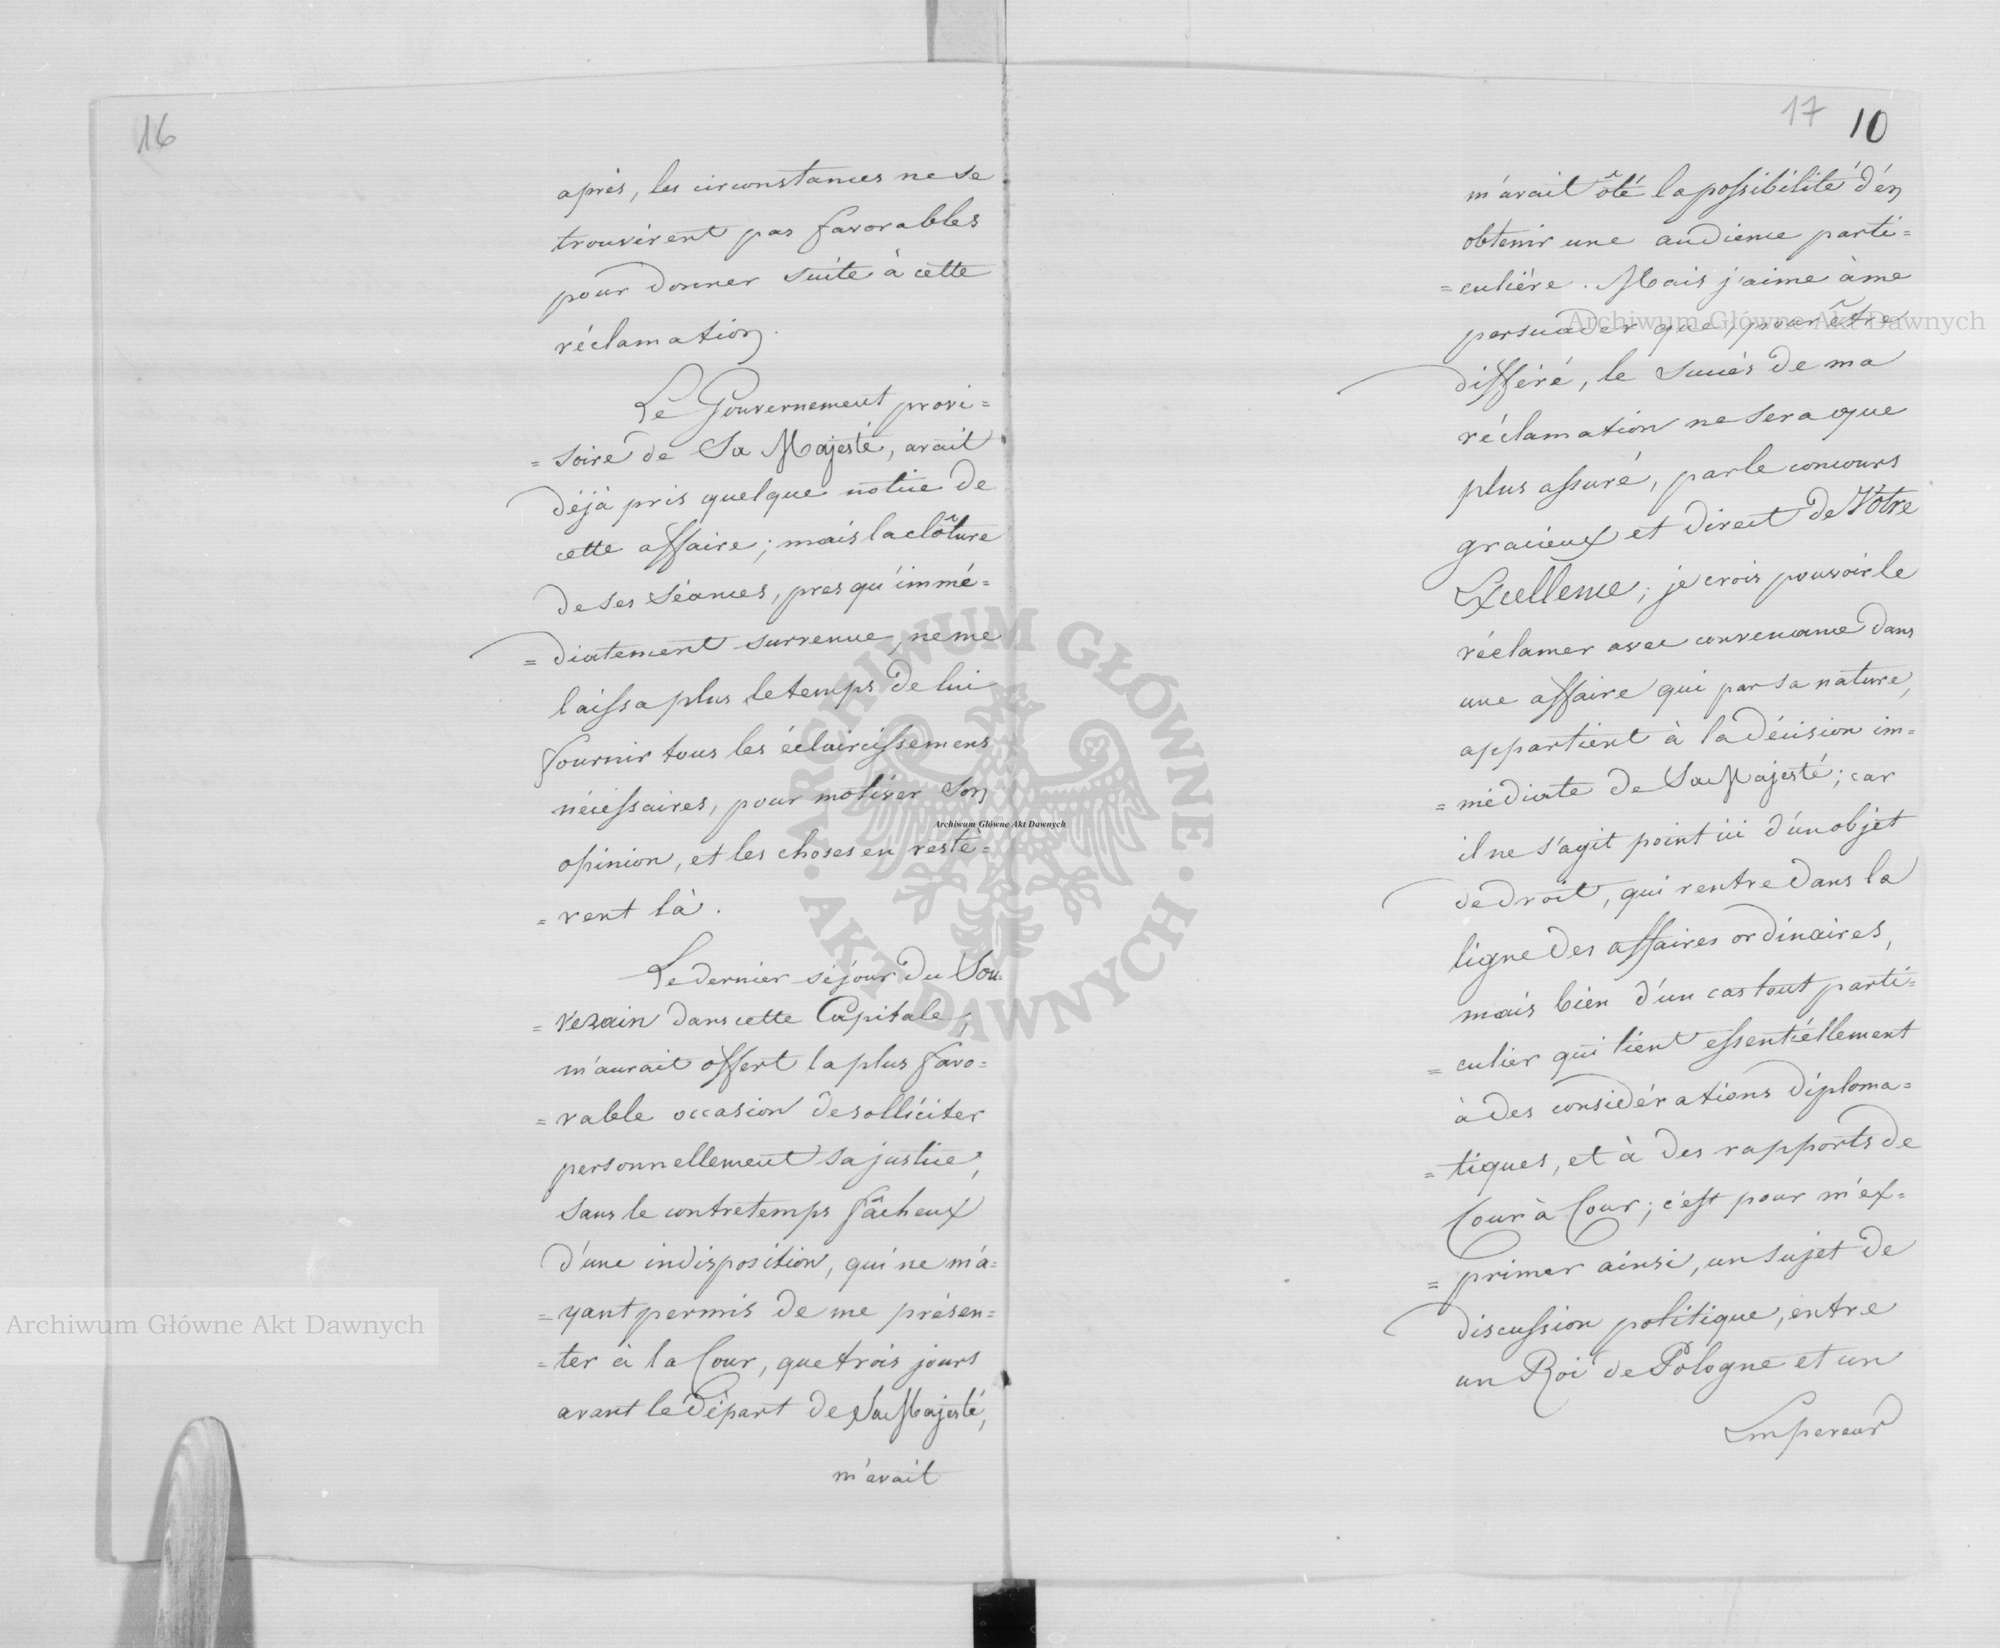 16
après, les circonstances ne se
trouvèrent pas favorables
pour donner suite à cette
réclamation.
Le Gouvernement provi=
= soire de Sa Majesté, avait
déjà pris quelque notice de
cette affaire; mais la clôture
de ses séances, presqu'immé=
= diatement survenue, ne me
laissa plus le temps de lui
fournir tous les éclaircissemens
nécessaires, pour motiver son
opinion, et les choses en restè=
= rent là.
Le dernier séjour du Sou=
= verain dans cette Capitale,
m'aurait offert la plus favo=
= rable occasion de solliciter
personnellement sa justice,
sans le contretemps fâcheux
d'une indisposition, qui ne m'a=
= yant permis de me présen=
= ter à la Cour, que trois jours
avant le départ de Sa Majesté,
m'avait
17 10
m'avait ôté la possibilité d'en
obtenir une audience parti=
= culière. Mais j'aime à me
persuader que, pour être
différé, le succès de ma
réclamation ne sera que
plus assuré, par le concours
gracieux et direct de Votre
Excellence; je crois pouvoir le
réclamer avec convenance dans
une affaire qui par sa nature,
appartient à la décision im=
= médiate de Sa Majesté; car
il ne s'agit point ici d'un objet
de droit, qui rentre dans la
ligne des affaires ordinaires,
mais bien d'un cas tout parti=
= culier qui tient essentiellement
à des considérations diploma=
= tiques, et à des rapports de
Cour à Cour; c'est pour m'ex=
= primer ainsi, un sujet de
discussion politique, entre
un Roi de Pologne et un
Empereur
Archiwum Główne Akt Dawnych
Archiwum Główne Akt Dawnych
Archiwum Główne Akt Dawnych
ARCHIWUM GŁÓWNE · AKT DAWNYCH ·